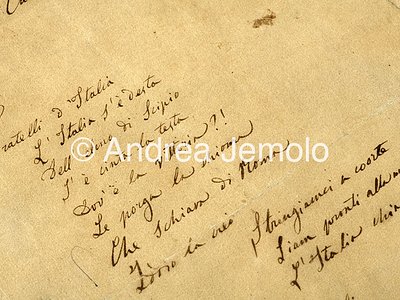 Fratelli d'Italia
L'Italia s'è desta
Dell'elmo di Scipio
S'è cinta la testa
Dov'è la vittoria?!
Le porga la chioma
Che schiava di Roma
Iddio la creò
Stringiamci a coorte
Siam pronti alla
L'Italia chia
© Andrea Jemolo